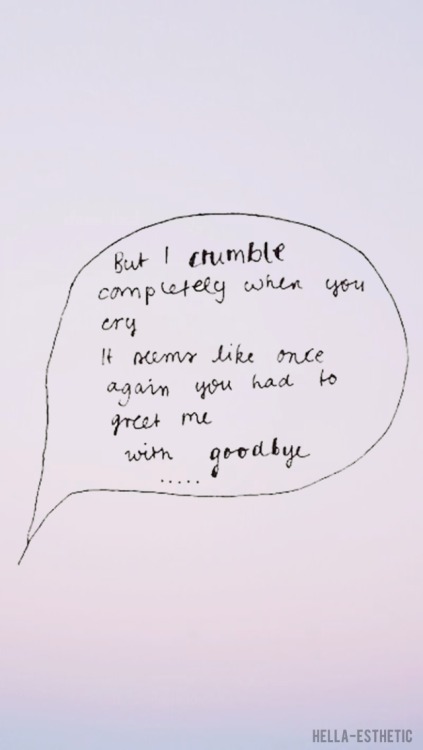 But I crumble
completely when you
cry
It seems like once
again you had to
greet me
with goodbye
.....
HELLA-ESTHETIC